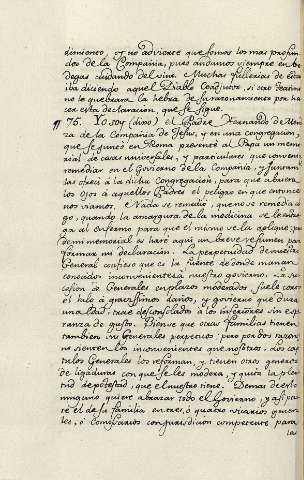 dimiones, y no advierte que somos los mas profun
dos de la Compañia, pues andamos siempre en bo
degas cuidando del vino. Muchas fullerias de esta
iba diciendo aquel Diablo Coadjutor, si otro Teatino
no le quebrara la hebra de su razonamiento por ha
cer esta declaracion, que se sigue.
¶ 75. Yo soy (dixo) el Padre Fernando de Mendo
za de la Compañia de Jesus, y en una congregacion,
que se juntò en Roma presentè al Papa un memo
rial de cosas universales, y particulares que convenia
remediar en el Govierno de la Compañia, y juntamen
te à la dicha Congregacion, para que abriera
los ojos à aquellos Padres el peligro en que entonces
nos viamos. Nada se remediò, que no se remedia
go, quando la amargura de la medicina se
al enfermo para que el mismo se la aplique;
de mi memorial os harè aqui un breve resumen para
formar mi declaracion. La perpetuidad de nuestro
General confieso que es la fuente de donde manan
conocidos inconvenientes à nuestro govierno. La su
cesion de Generales en plazos moderados, suele cortar
el hilo à gravissimos daños, y govierno que dura
una edad, trae desconsolados à los inferiores sin es
peranza de gusto. Diense que otras familias tienen
tambien sus Generales perpetuos: pero por dos razones
no sienten los inconvenientes que nosotros. Los capi
tulos Generales los reforman, y tienen otros generos
de ligaduras con que se les modera, y quita la pleni
tud de potestad, que el nuestro tiene. Demas de esto
ninguno quiere abrazar todo el Govierno, y assi par
te el de su familia en tres, ò quatro vicarios gene
rales, ò Comisarios con jurisdicion competente para
la